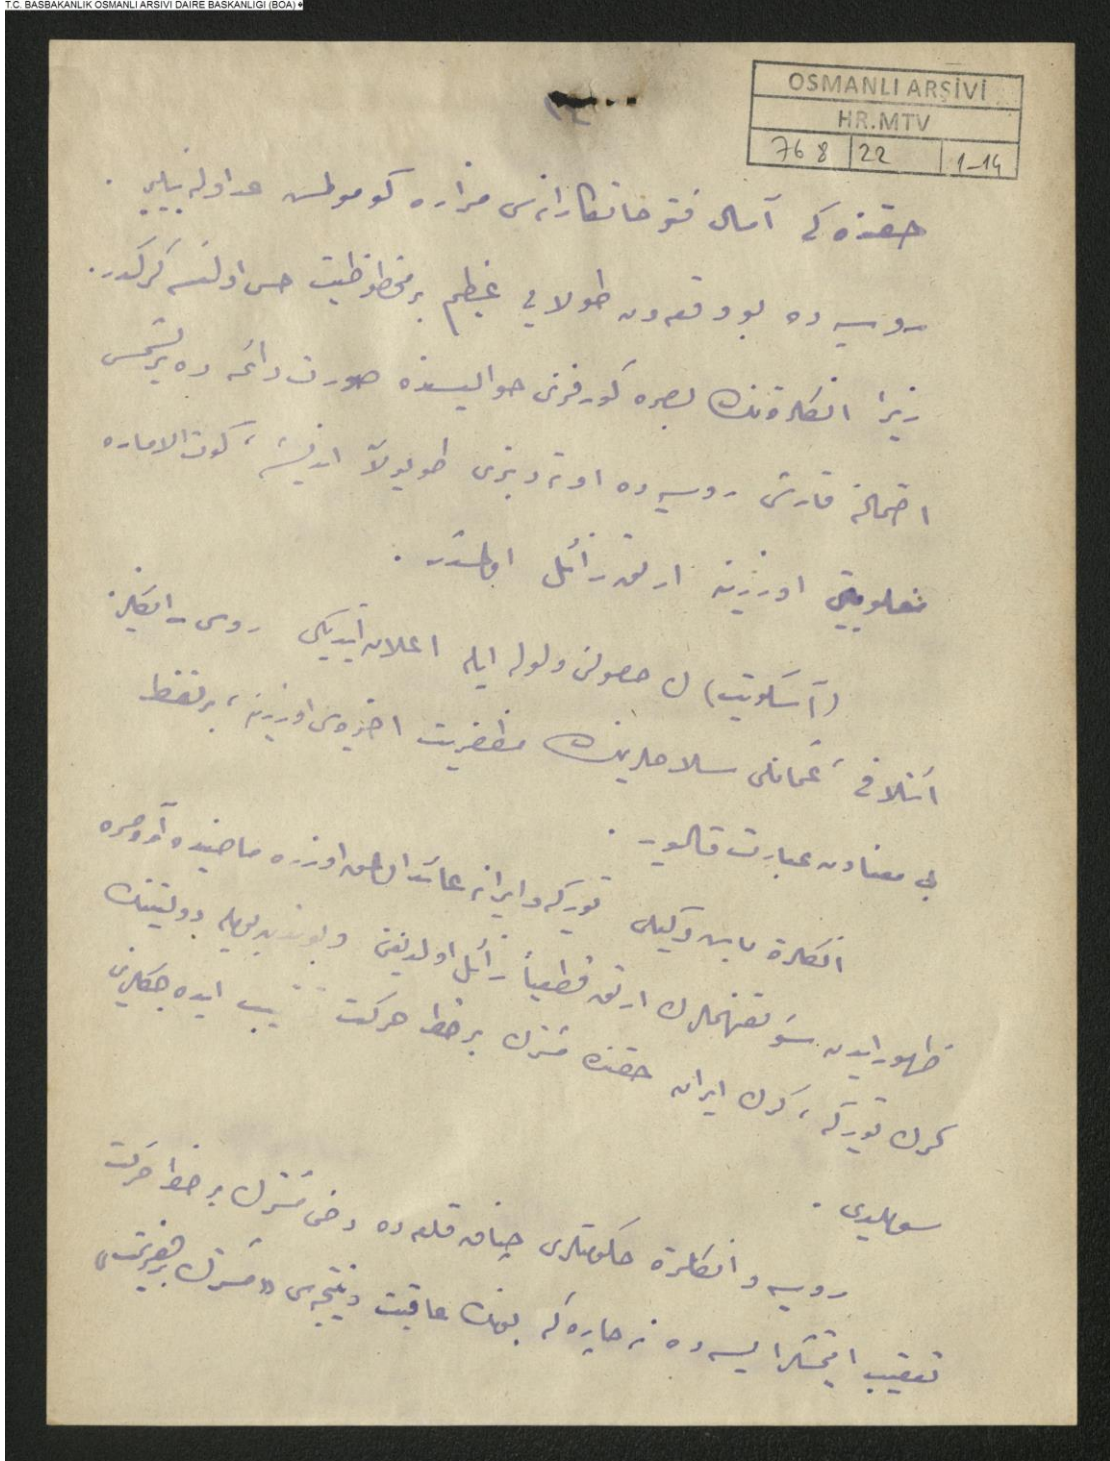 T.C. BASBAKANLIK OSMANLI ARSIVI DAIRE BASKANLIGI (BOA)
OSMANLI ARŞİVİ
HR.MTV
768 | 22 | 1-14
حقنده كی آمال فتوحاتكارانه‌سی مزاره كومولمش عد اولنه‌بیلیر .
روسیه ده بو وقعه‌دن طولایی عظیم بر محظوظیت حس اولنسه كركدر .
زیرا انكلتره‌نك بصره كورفزی حوالیسنده صورت دائمه ده یرلشمسی
احتمالنه قارشی روسیه ده اوته‌دنبری طویولان اندیشه ، كوت الاماره
مغلوبیتی اوزرینه ارتق زائل اولمشدر .
(آسكویت) ك حصولنی ولوله ایله اعلان ایتدیكی روس - انكلیز
ائتلافی ، عثمانلی سلاحلرینك مظفریت اخیره‌سی اوزرینه ، بر لفظ
بی معنادن عبارت قالیور .
انكلتره باش وكیلی توركیه و ایرانه عائد اولمق اوزره ماضیده آره‌صره
ظهور ایدن سوء تفهملرك ارتق قطعیاً زائل اولدیغنی و بوندن بویله دولتینك
كرك توركیه ، كرك ایران حقنده مشترك بر خط حركت تعقیب ایده‌جكلرینی
سویلدی .
روسیه و انكلتره حكومتلری چناق قلعه ده دخی مشترك بر خط حركت
تعقیب ایتمشلر ایسه ده نه چاره كه بونك عاقبت و نتیجه‌سی «مشترك بر هزیمت»